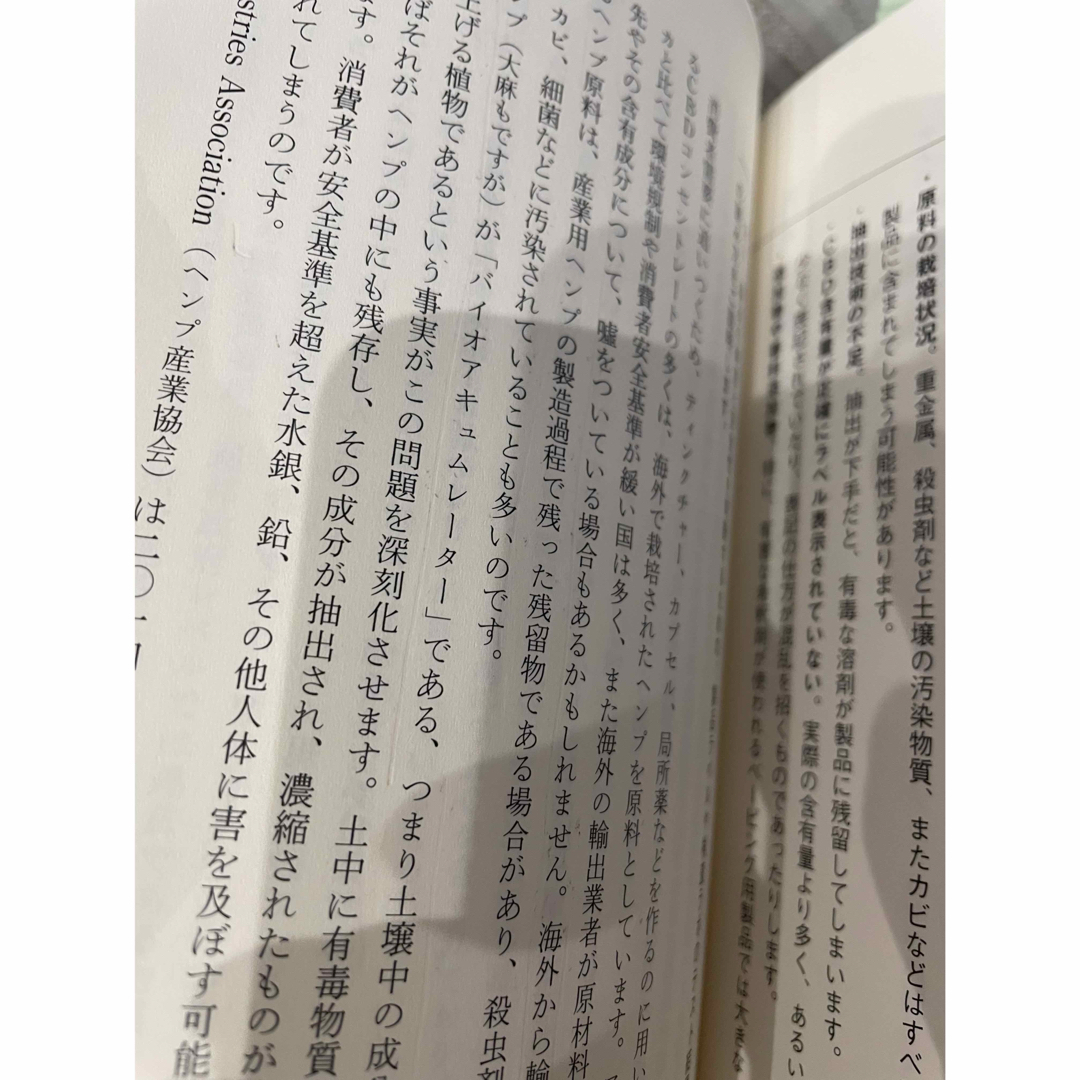 ・原料の栽培状況。重金属、殺虫剤など土壌の汚染物質、またカビなどはすべ
製品に含まれてしまう可能性があります。
・抽出技術の不足。抽出が下手だと、有毒な溶剤が製品に残留してしまいます。
含有量が正確にラベル表示されていない。実際の含有量より多く、あるい
表記の仕方が混乱を招くものであったりします。
が使われるベーピング用製品では大きな
に追いつくため、ティンクチャー、カプセル、局所薬などを作るのに用い
るCBDコンセントレートの多くは、海外で栽培されたヘンプを原料としています。
カと比べて環境規制や消費者安全基準が緩い国は多く、また海外の輸出業者が原材料
先やその含有成分について、嘘をついている場合もあるかもしれません。海外から輸
ヘンプ原料は、産業用ヘンプの製造過程で残った残留物である場合があり、殺虫剤
カビ、細菌などに汚染されていることも多いのです。
ンプ（大麻もですが）が「バイオアキュムレーター」である、つまり土壌中の成
上げる植物であるという事実がこの問題を深刻化させます。土中に有毒物質
ばそれがヘンプの中にも残存し、その成分が抽出され、濃縮されたものが
ます。消費者が安全基準を超えた水銀、鉛、その他人体に害を及ぼす可能
れてしまうのです。
stries Association（ヘンプ産業協会）は二〇一